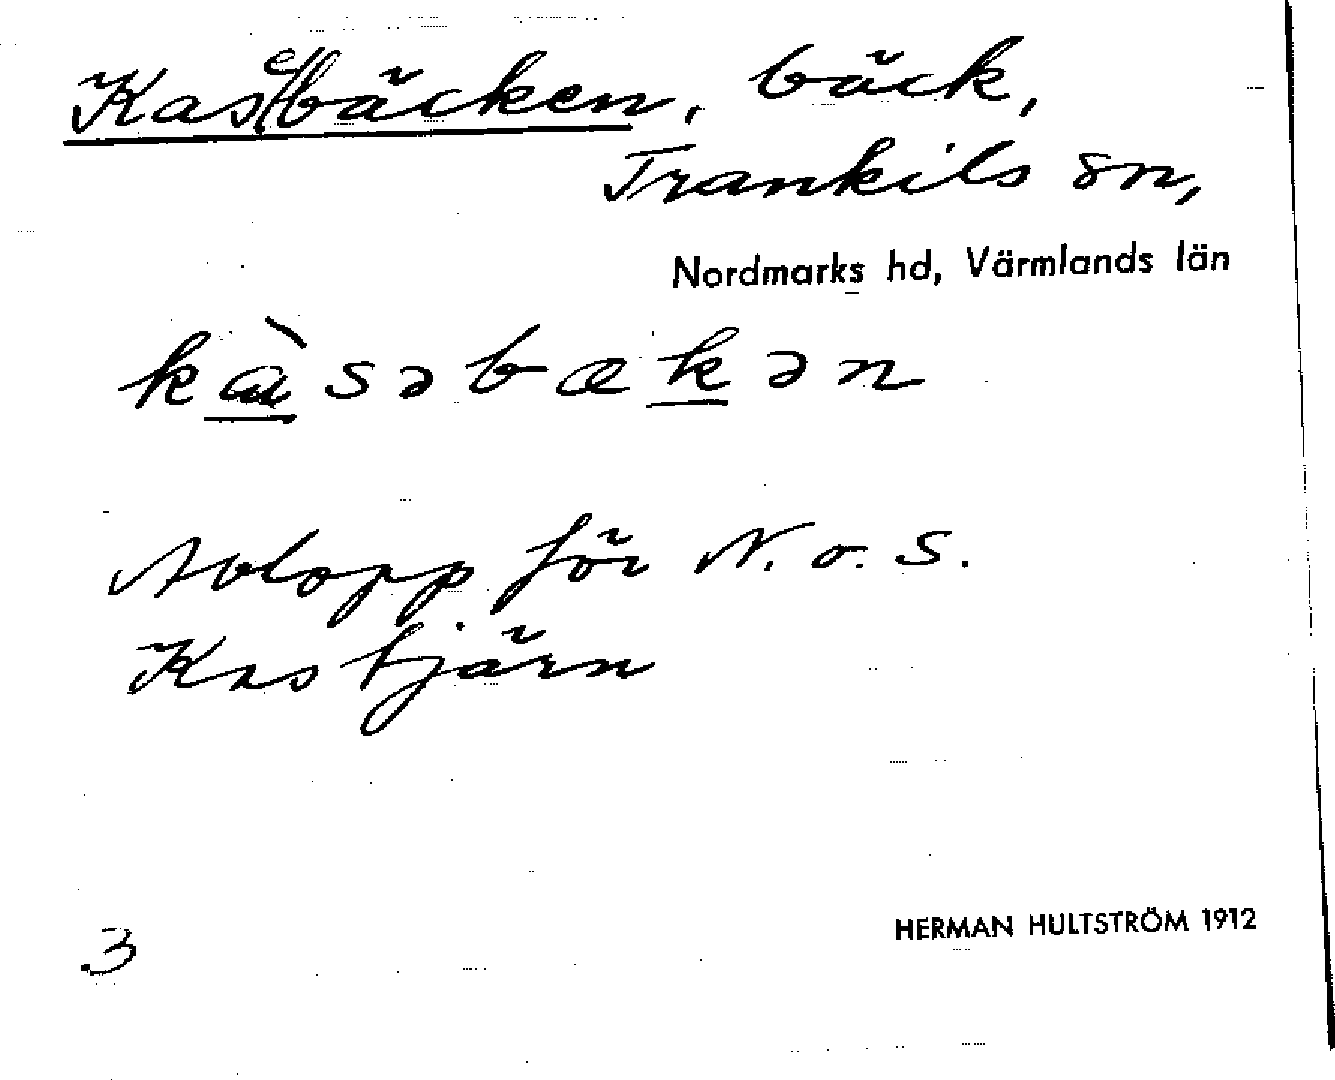 Kasebäcken, bäck,
Trankils sn,
Nordmarks hd, Värmlands län
kàsəbækən
Avlopp för N. o. S.
Kastjärn
3
HERMAN HULTSTRÖM 1912